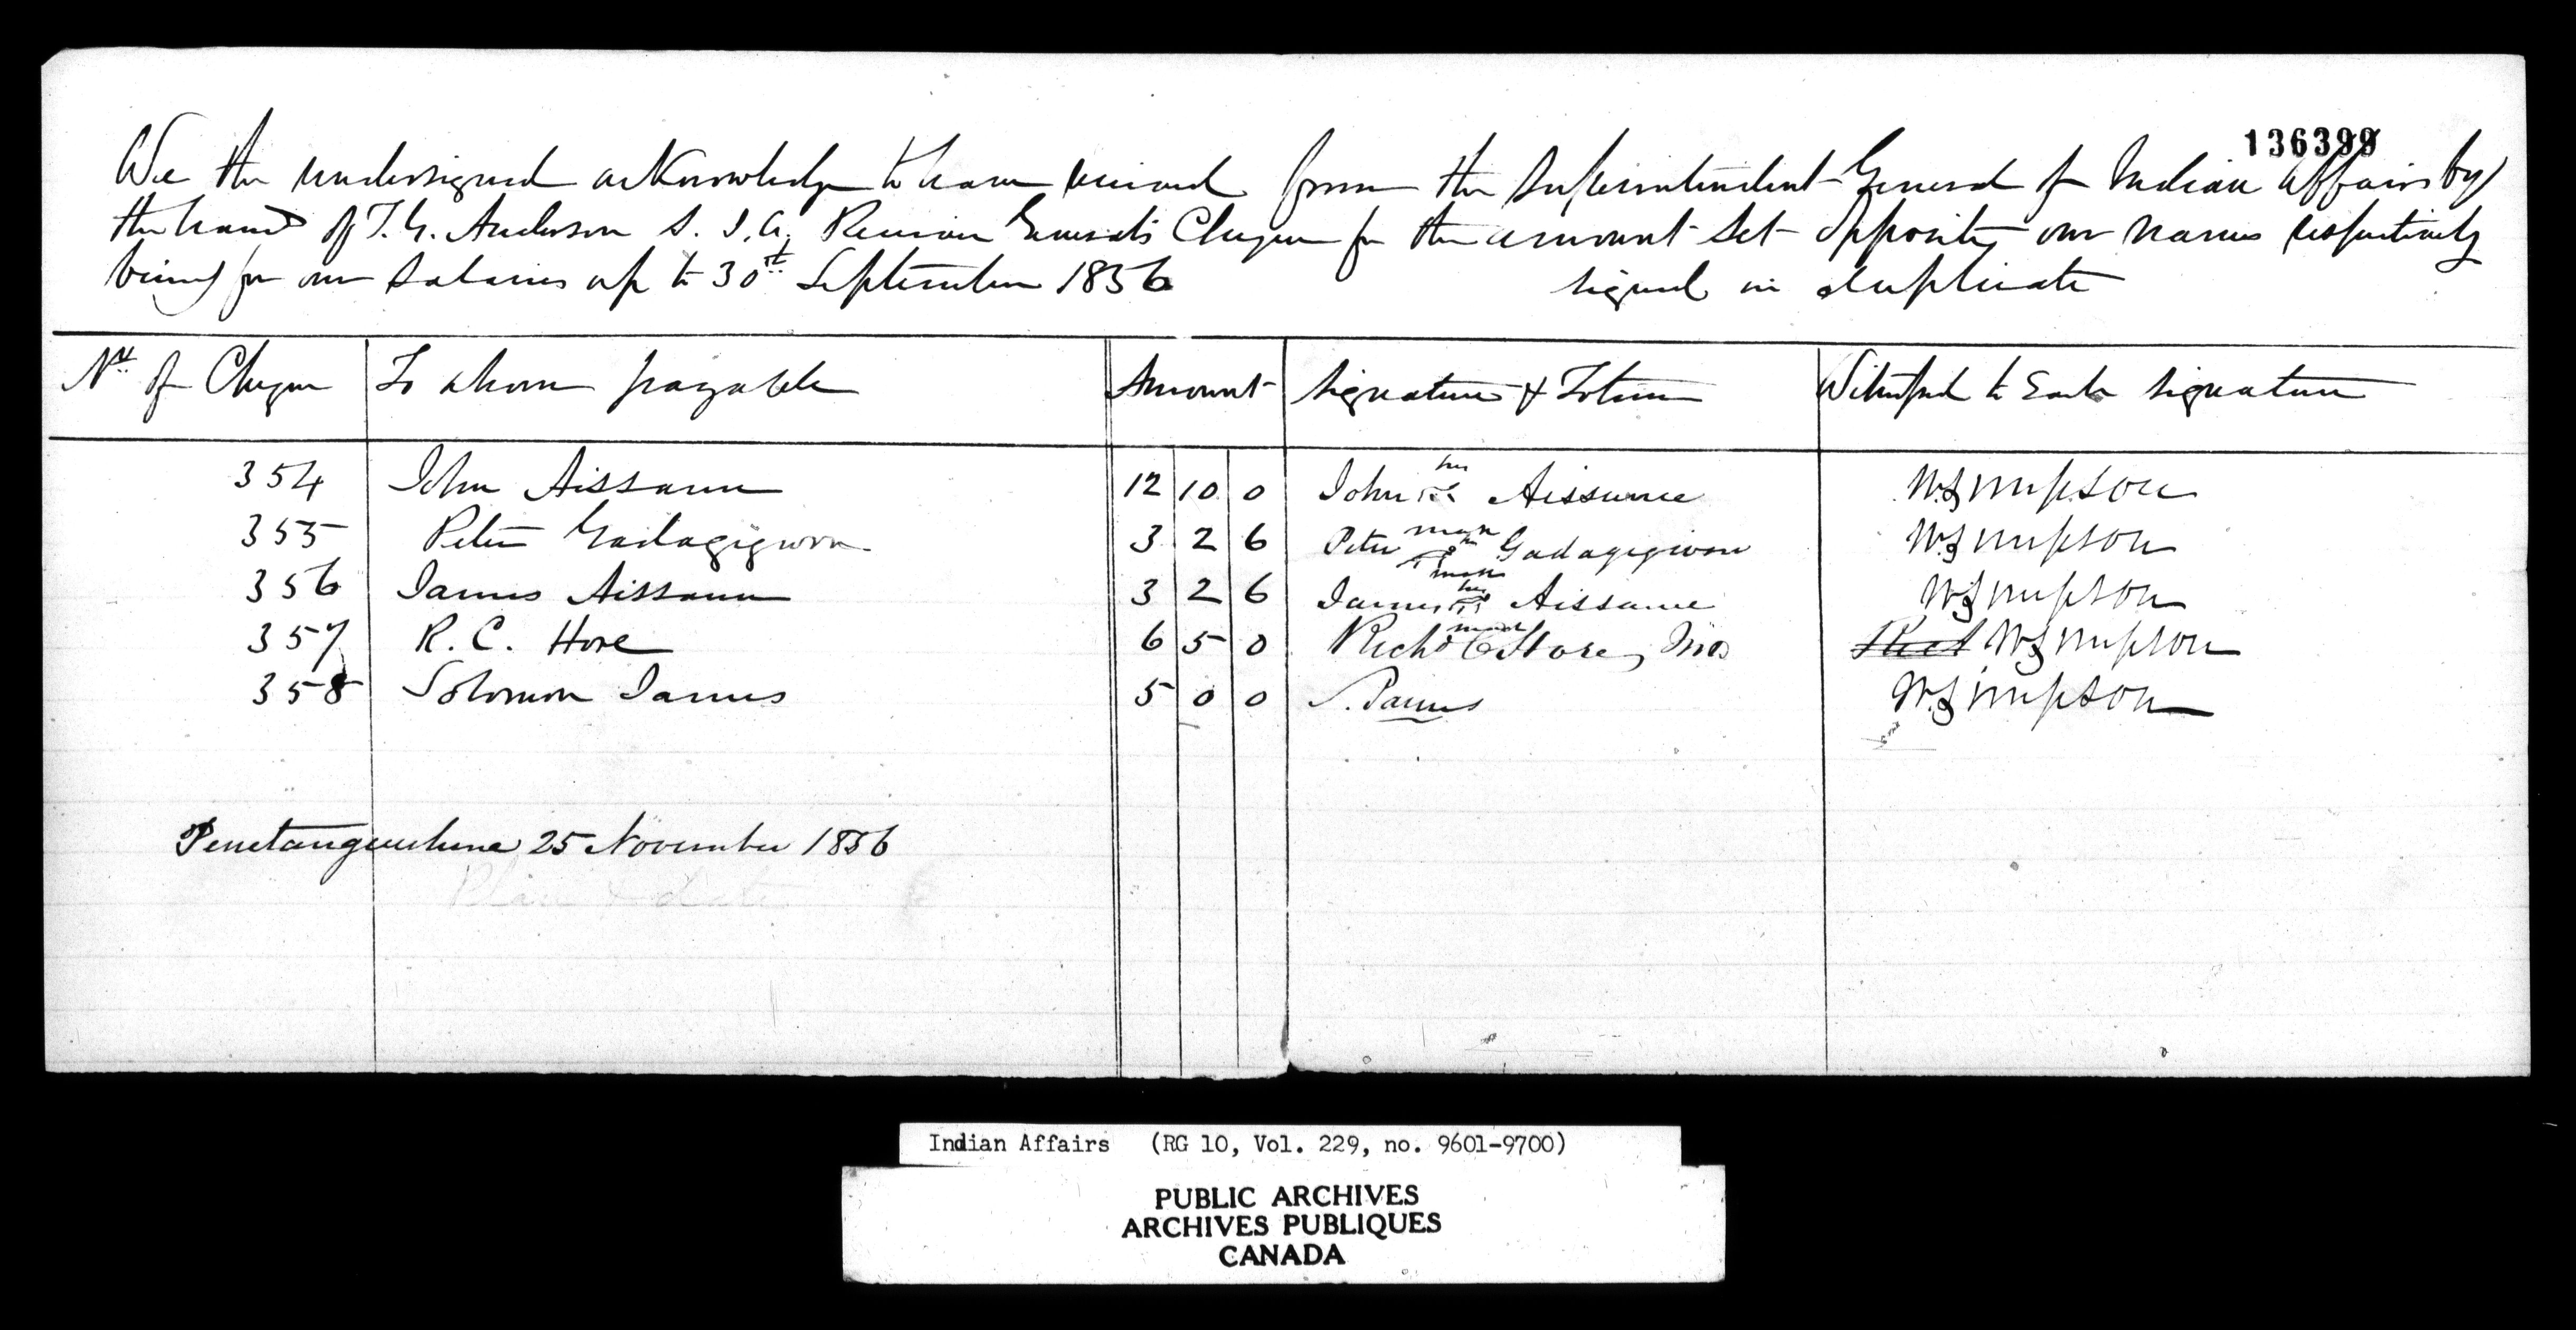 136399
We the undersigned acknowledge to have received from the Superintendent General of Indian Affairs by
the hand of T. G. Anderson S. I. A. Receiver General's Cheque for the amount set opposite our names respectively
being for our Salaries up to 30th September 1856 signed in duplicate
No. of Cheque To whom payable Amount Signature & Totem Witnessed to Each Signature
354 John Aissance 12 10 0 John his mark Aissance W. Simpson
355 Peter Gadagigwon 3 2 6 Peter his mark Gadagigwon W. Simpson
356 James Aissance 3 2 6 James his mark Aissance W. Simpson
357 R. C. Hore 6 5 0 Richd C Hore, W. Simpson
358 Solomon James 5 0 0 S. James W. Simpson
Penetanguishene 25 November 1856
Place & date
Indian Affairs (RG 10, Vol. 229, no. 9601-9700)
PUBLIC ARCHIVES
ARCHIVES PUBLIQUES
CANADA